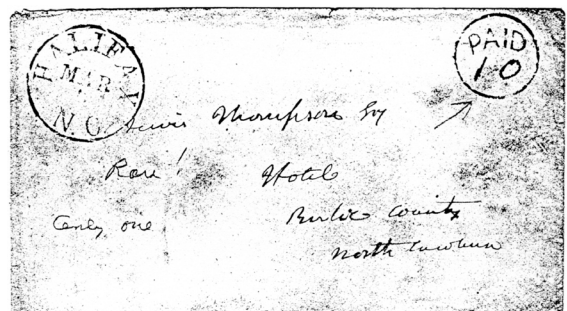 HALIFAX
MAR
N.C.
PAID
10
Lewis Thompson Esq
Rare!
Hotel
Only one
Bertie County
North Carolina